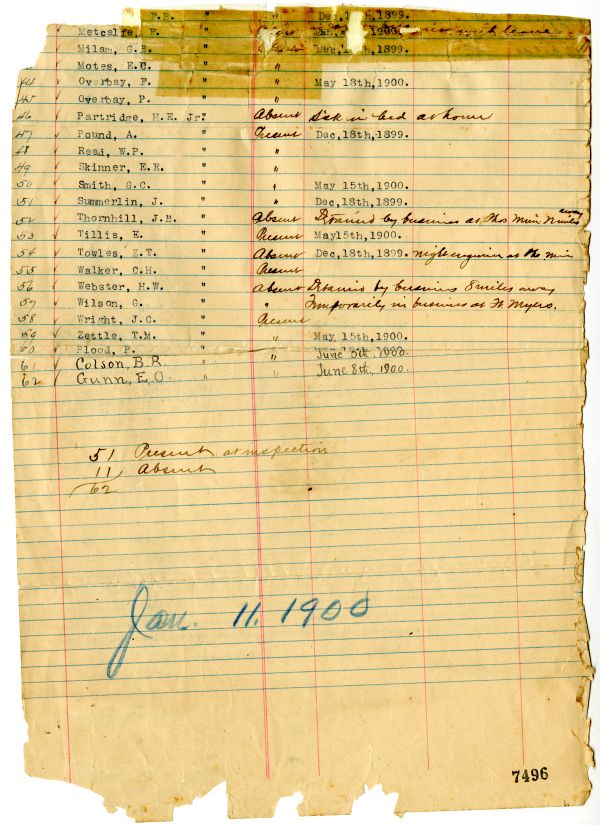 F.R. " Dec,18th,1899.
Metcalfe, F. " Jan, 1900. with leave
Milam, G.B. " Dec,18th,1899.
Motes, E.C. " "
44 ✓ Overbay, F. " " May 18th,1900.
45 ✓ Overbay, P. " "
46 ✓ Partridge, H.E. Jr. " Absent Sick in bed at home
47 ✓ Pound, A. " Present Dec,18th,1899.
48 ✓ Read, W.P. " "
49 ✓ Skinner, E.E. " "
50 ✓ Smith, G.C. " " May 15th,1900.
51 ✓ Summerlin, J. " " Dec,18th,1899.
52 ✓ Thornhill, J.H. " Absent Detained by business at Phos Mine 8 miles away
53 ✓ Tillis, E. " Present May15th,1900.
54 ✓ Towles, Z.T. " Absent Dec,18th,1899. night engineer at Pho mine
55 ✓ Walker, C.H. " Present
56 ✓ Webster, H.W. " Absent Detained by business 8 miles away
57 ✓ Wilson, G. " " Temporarily in business at Ft Myers.
58 ✓ Wright, J.C. " Present
59 ✓ Zettle, T.M. " " May 15th,1900.
60 ✓ Blood, P. " " June 5th 1900.
61 ✓ Colson, B.R. " "
62 ✓ Gunn, E.O. " " June 8th, 1900.
51 Present at inspection
11 Absent
62
Jan. 11. 1900
7496